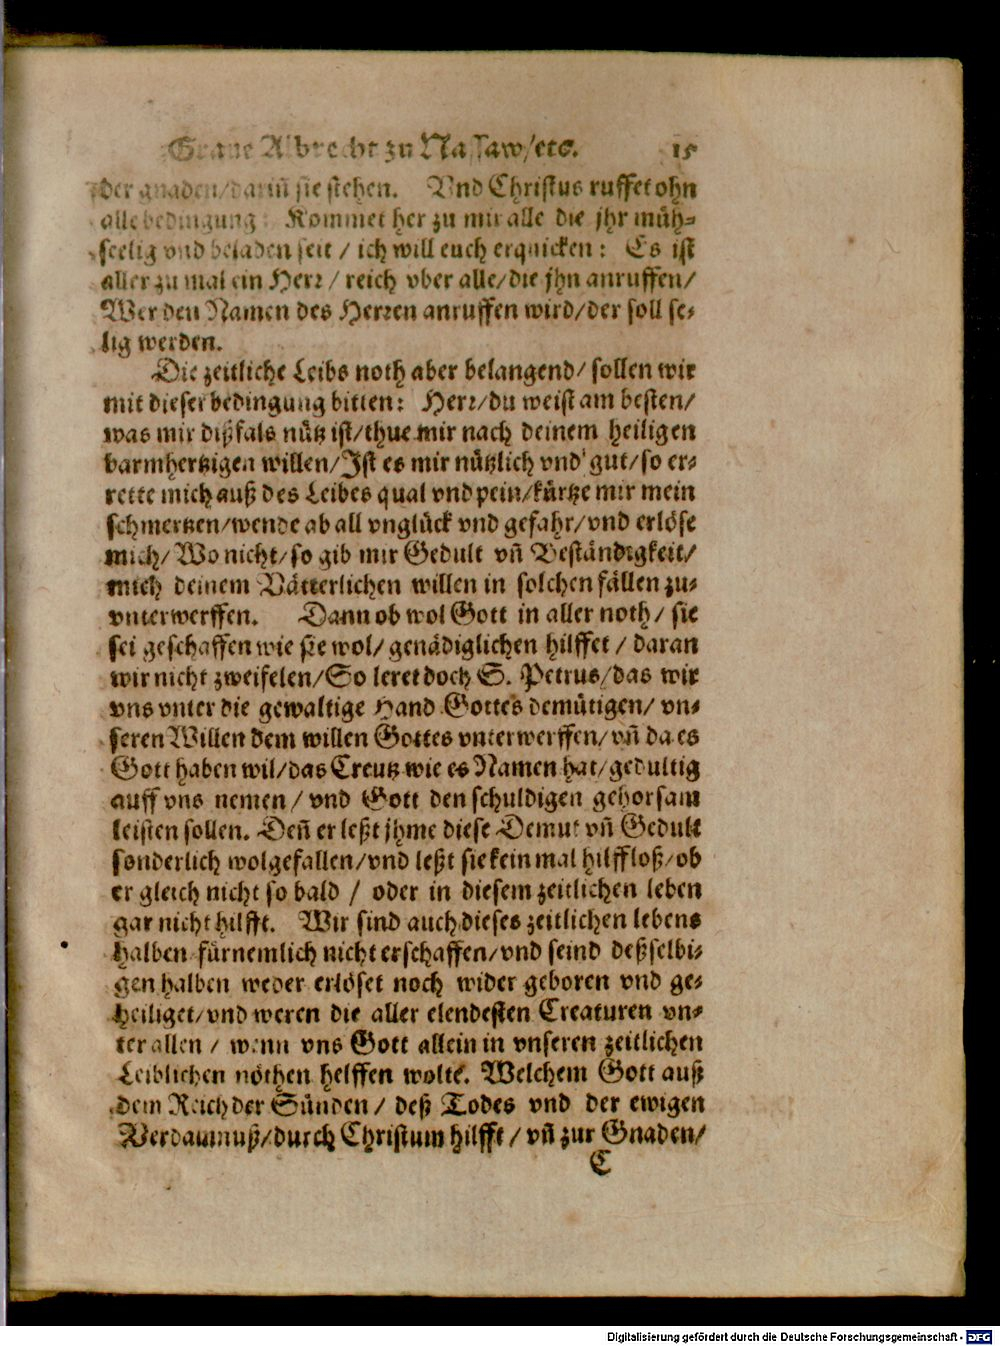 Graue Albrecht zu Nassaw/etc. 15
der gnaden/darin̄ sie stehen. Vnd Christus ruffet ohn
alle bedingung: Kommet her zu mir alle die jhr müh-
seelig vnd beladen seit / ich will euch erquicken: Es ist
aller zu mal ein Herr / reich vber alle/die jhn anruffen/
Wer den Namen des Herren anruffen wird/der soll se-
lig werden.
Die zeitliche Leibs noth aber belangend/ sollen wir
mit dieser bedingung bitten: Herr/du weist am besten/
was mir dißfals nütz ist/thue mir nach deinem heiligen
barmhertzigen willen/Ist es mir nützlich vnd gut/so er-
rette mich auß des Leibes qual vnd pein/kürtze mir mein
schmertzen/wende ab all vnglück vnd gefahr/vnd erlöse
mich/Wo nicht/so gib mir Gedult vn̄ Beständigkeit/
mich deinem Vätterlichen willen in solchen fällen zu-
vnterwerffen. Dann ob wol Gott in aller noth/ sie
sei geschaffen wie sie wol/ genädiglichen hilffet / daran
wir nicht zweifelen/So leret doch S. Petrus/das wir
vns vnter die gewaltige Hand Gottes demütigen/ vn-
seren Willen dem willen Gottes vnterwerffen/vn̄ da es
Gott haben wil/das Creutz wie es Namen hat/gedultig
auff vns nemen / vnd Gott den schuldigen gehorsam
leisten sollen. Den̄ er leßt jhme diese Demut vn̄ Gedult
sonderlich wolgefallen/vnd leßt sie kein mal hilffloß/ob
er gleich nicht so bald / oder in diesem zeitlichen leben
gar nicht hilfft. Wir sind auch dieses zeitlichen lebens
halben fürnemlich nicht erschaffen/vnd seind deßselbi-
gen halben weder erlöset noch wider geboren vnd ge-
heiliget/vnd weren die aller elendesten Creaturen vn-
ter allen / wenn vns Gott allein in vnseren zeitlichen
Leiblichen nöthen helffen wolte. Welchem Gott auß
dem Reich der Sünden / deß Todes vnd der ewigen
Verdamnuß/durch Christum hilfft / vn̄ zur Gnaden/
C
Digitalisierung gefördert durch die Deutsche Forschungsgemeinschaft - DFG